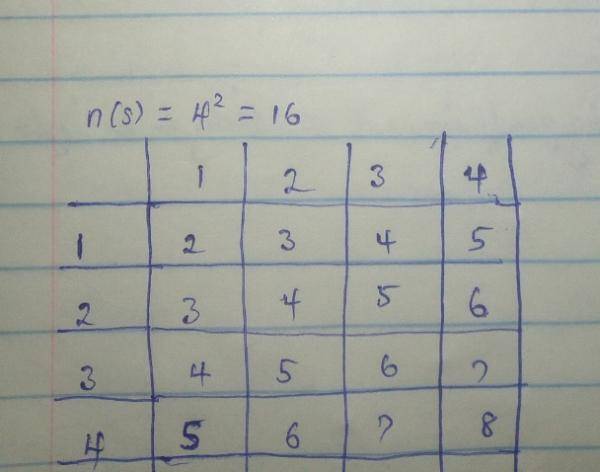 n(s) = 4² = 16
1 2 3 4
1 2 3 4 5
2 3 4 5 6
3 4 5 6 7
4 5 6 7 8